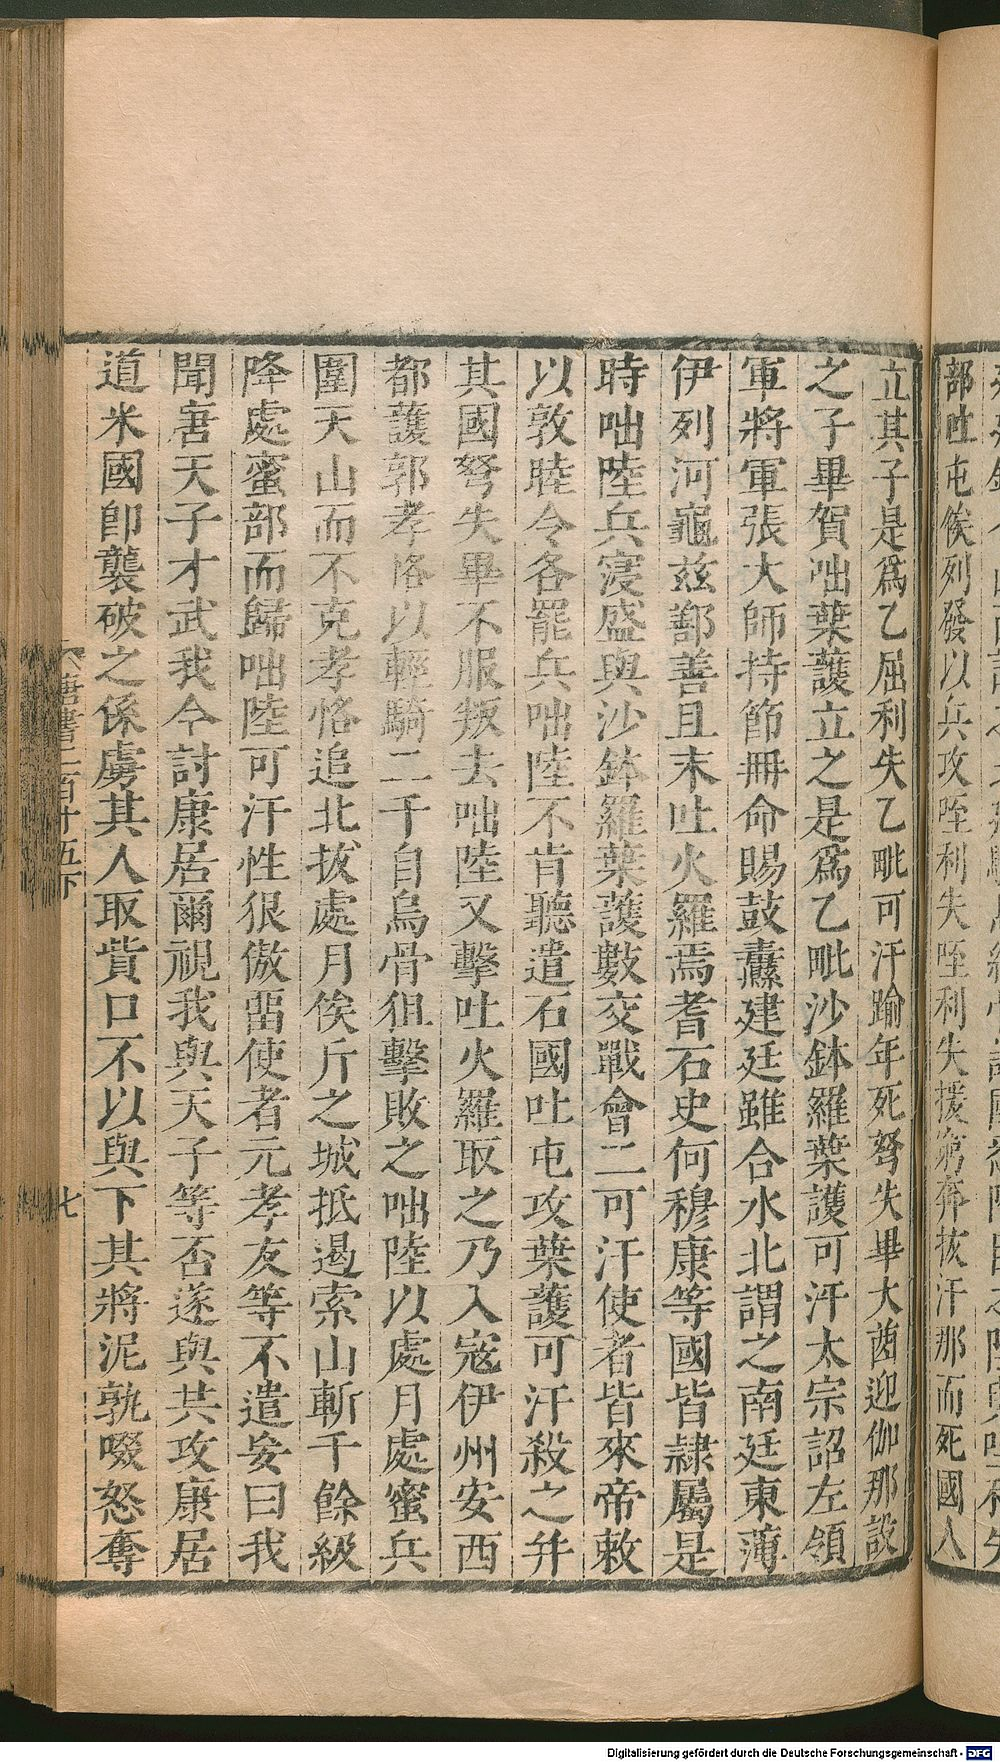 部吐屯俟列發以兵攻咥利失咥利失援窮奔拔汗那而死國人
立其子是爲乙屈利失乙毗可汗踰年死弩失畢大酋迎伽那設
之子畢賀咄葉護立之是爲乙毗沙鉢羅葉護可汗太宗詔左領
軍將軍張大師持節冊命賜鼓纛建廷雖合水北謂之南廷東薄
伊列河龜兹鄯善且末吐火羅焉耆石史何穆康等國皆隸屬是
時咄陸兵寖盛與沙鉢羅葉護數交戰會二可汗使者皆來帝敕
以敦睦令各罷兵咄陸不肯聽遣石國吐屯攻葉護可汗殺之并
其國弩失畢不服叛去咄陸又擊吐火羅取之乃入寇伊州安西
都護郭孝恪以輕騎二千自烏骨狙擊敗之咄陸以處月處蜜兵
圍天山而不克孝恪追北拔處月俟斤之城抵遏索山斬千餘級
降處蜜部而歸咄陸可汗性佷傲畱使者元孝友等不遣妄曰我
聞唐天子才武我今討康居爾視我與天子等否遂與共攻康居
道米國卽襲破之係虜其人取貲口不以與下其將泥孰啜怒奪
唐書二百十五下
七
Digitalisierung gefördert durch die Deutsche Forschungsgemeinschaft - DFG